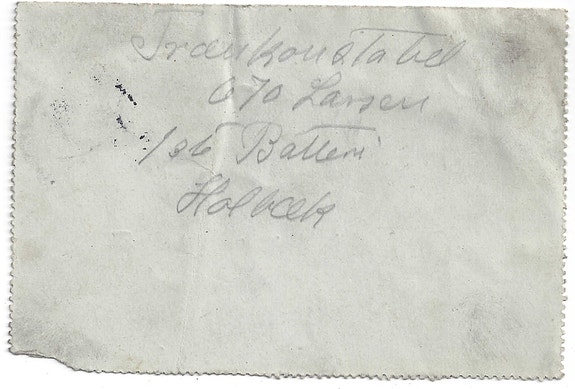 Trænkonstabel
670 Larsen
1ste Batteri
Holbæk